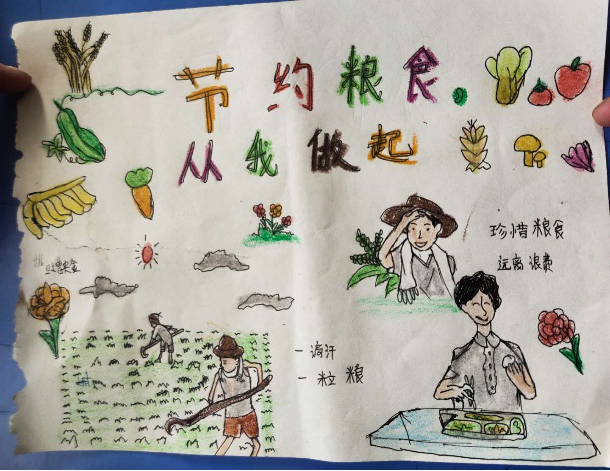 节约粮食.
从我做起
珍惜粮食
远离浪费
一滴汗
一粒粮